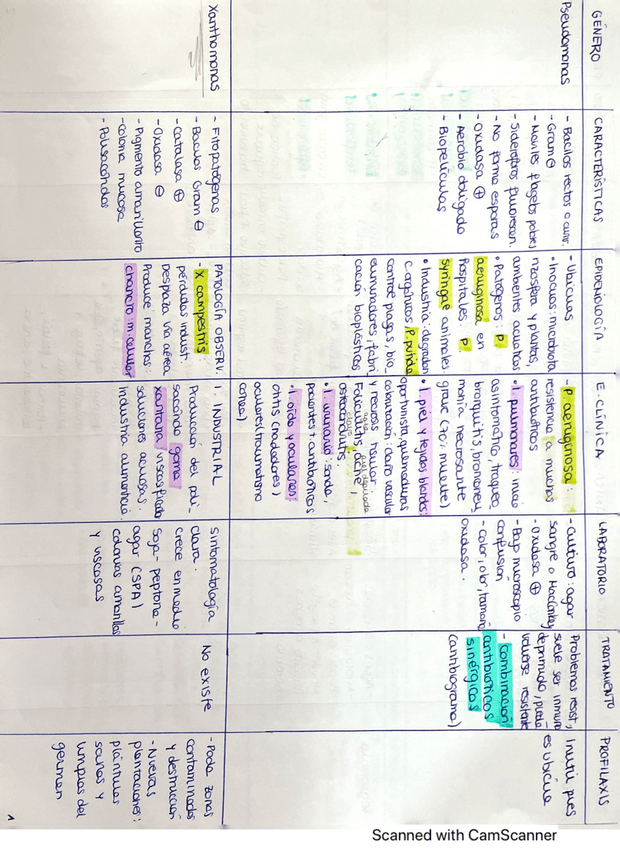 GÉNERO
CARACTERÍSTICAS
EPIDEMIOLOGÍA
E. CLÍNICA
LABORATORIO
TRATAMIENTO
PROFILAXIS
Pseudomonas
- Bacilos rectos o curv.
- Gram ⊖
- Moviles flagelos polares
- Sideróforos fluorescen.
- No forma esporas
- Oxidasa ⊕
- Aerobio obligado
- Biopelículas
- Ubicuas
• Inocuos: microbiota
rizosfera y plantas,
ambientes acuáticos
• Patógenos: P.
aeruginosa en
hospitales; P.
syringae animales
• Industria: degradan
c. orgánicos, P. putida
control plagas, bio
eliminadores, fabri
cación bioplásticos
- P. aeruginosa:
resistencia a muchos
antibióticos
• I. pulmonares: inicio
asintomático, traqueo
bronquitis, bronconeu
monía necrosante
grave (70% muerte)
• I. piel y tejidos blandos:
oportunista, quemaduras
colonización, daño vascular
y necrosis tisular
Foliculitis, acné,
osteocondritis
• I. urinario: sonda,
pacientes + antibióticos
• I. oído y oculares:
otitis (nadadores)
oculares (traumatismo
cornea)
- Cultivo: agar
sangre o MacConkey
- Oxidasa ⊕
- Bajo microscopio
confusión
- Color, olor, tamaño
oxidasa.
Problemas resist,
suele ser inmuno
deprimido, puede
volverse resistente
- Combinación
antibióticos
sinérgicos
(antibiograma)
Inutil pues
es ubicua
Xanthomonas
- Fitopatógenas
- Bacilos Gram ⊖
- Catalasa ⊕
- Oxidasa ⊖
- Pigmento amarillento
- Colonia mucosa
- Polisacáridos
PATOLOGÍA OBSERV.
- X campestris:
pérdidas indust.
Desplaza vía aérea
Produce manchas.
chancro: m. celular
I. INDUSTRIAL
Producción del poli-
sacárido goma
xantana: viscosificador
soluciones acuosas.
Industria alimentaria
sintomatología
clara.
Crece en medio
soja-peptona-
agar (SPA)
colonias amarillas
y viscosas
No existe
- Poda zonas
contaminadas
y destrucción
- Nuevas
plantaciones:
plántulas
sanas y
limpias del
germen
1
Scanned with CamScanner